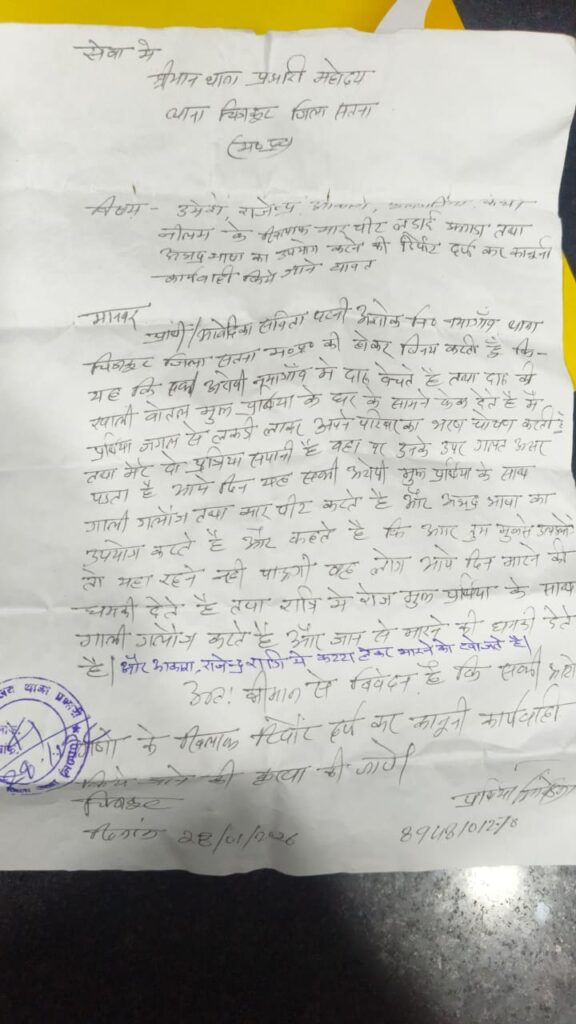 सेवा मे
श्रीमान थाना प्रभारी महोदय
थाना चित्रकुट जिला सतना
(म०प्र०)
विषय - उमेश, राजेन्द्र, तथा
नीलम के खिलाफ मार पीट लडाई झगडा तथा
अभद्र भाषा का उपयोग करने की रिर्पोट दर्ज कर कानूनी
कार्यवाही किये जाने बावत
मान्यवर
प्रार्थी/आवेदिका सविता पत्नी अशोक नि० नयागाँव थाना
चित्रकुट जिला सतना म०प्र० की होकर विनय करती है कि-
यह कि सभी आरोपी नयागाँव मे दारू बेचते है तथा दारू की
खाली बोतल मुझ प्रार्थिया के घर के सामने फेक देते है मै
प्रार्थिया जंगल से लकडी लाकर अपने परिवार का भरण पोषण करती है
तथा मेरे दो पुत्रिया सयानी है वहा पर उनके उपर गलत असर
पडता है आये दिन यह सभी आरोपी मुझ प्रार्थिया के साथ
गाली गलौज तथा मार पीट करते है और अभद्र भाषा का
उपयोग करते है और कहते है कि अगर तुम मुझसे
तो यहा रहने नही पाओगी वह लोग आये दिन मारने की
धमकी देते है तथा रात्रि मे रोज मुझ प्रार्थिया के साथ
गाली गलौज करते है और जान से मारने की धमकी देते
है। और आकाश, राजेन्द्र रात्रि मे कट्टा लेकर मारने को खोजते है।
अतः श्रीमान से निवेदन है कि सभी आरो
पीगण के खिलाफ रिर्पोट दर्ज कर कानूनी कार्यवाही
किये जाने की कृपा की जाये।
चित्रकुट
प्रार्थिया
दिनांक 28/01/2026
थाना प्रभारी